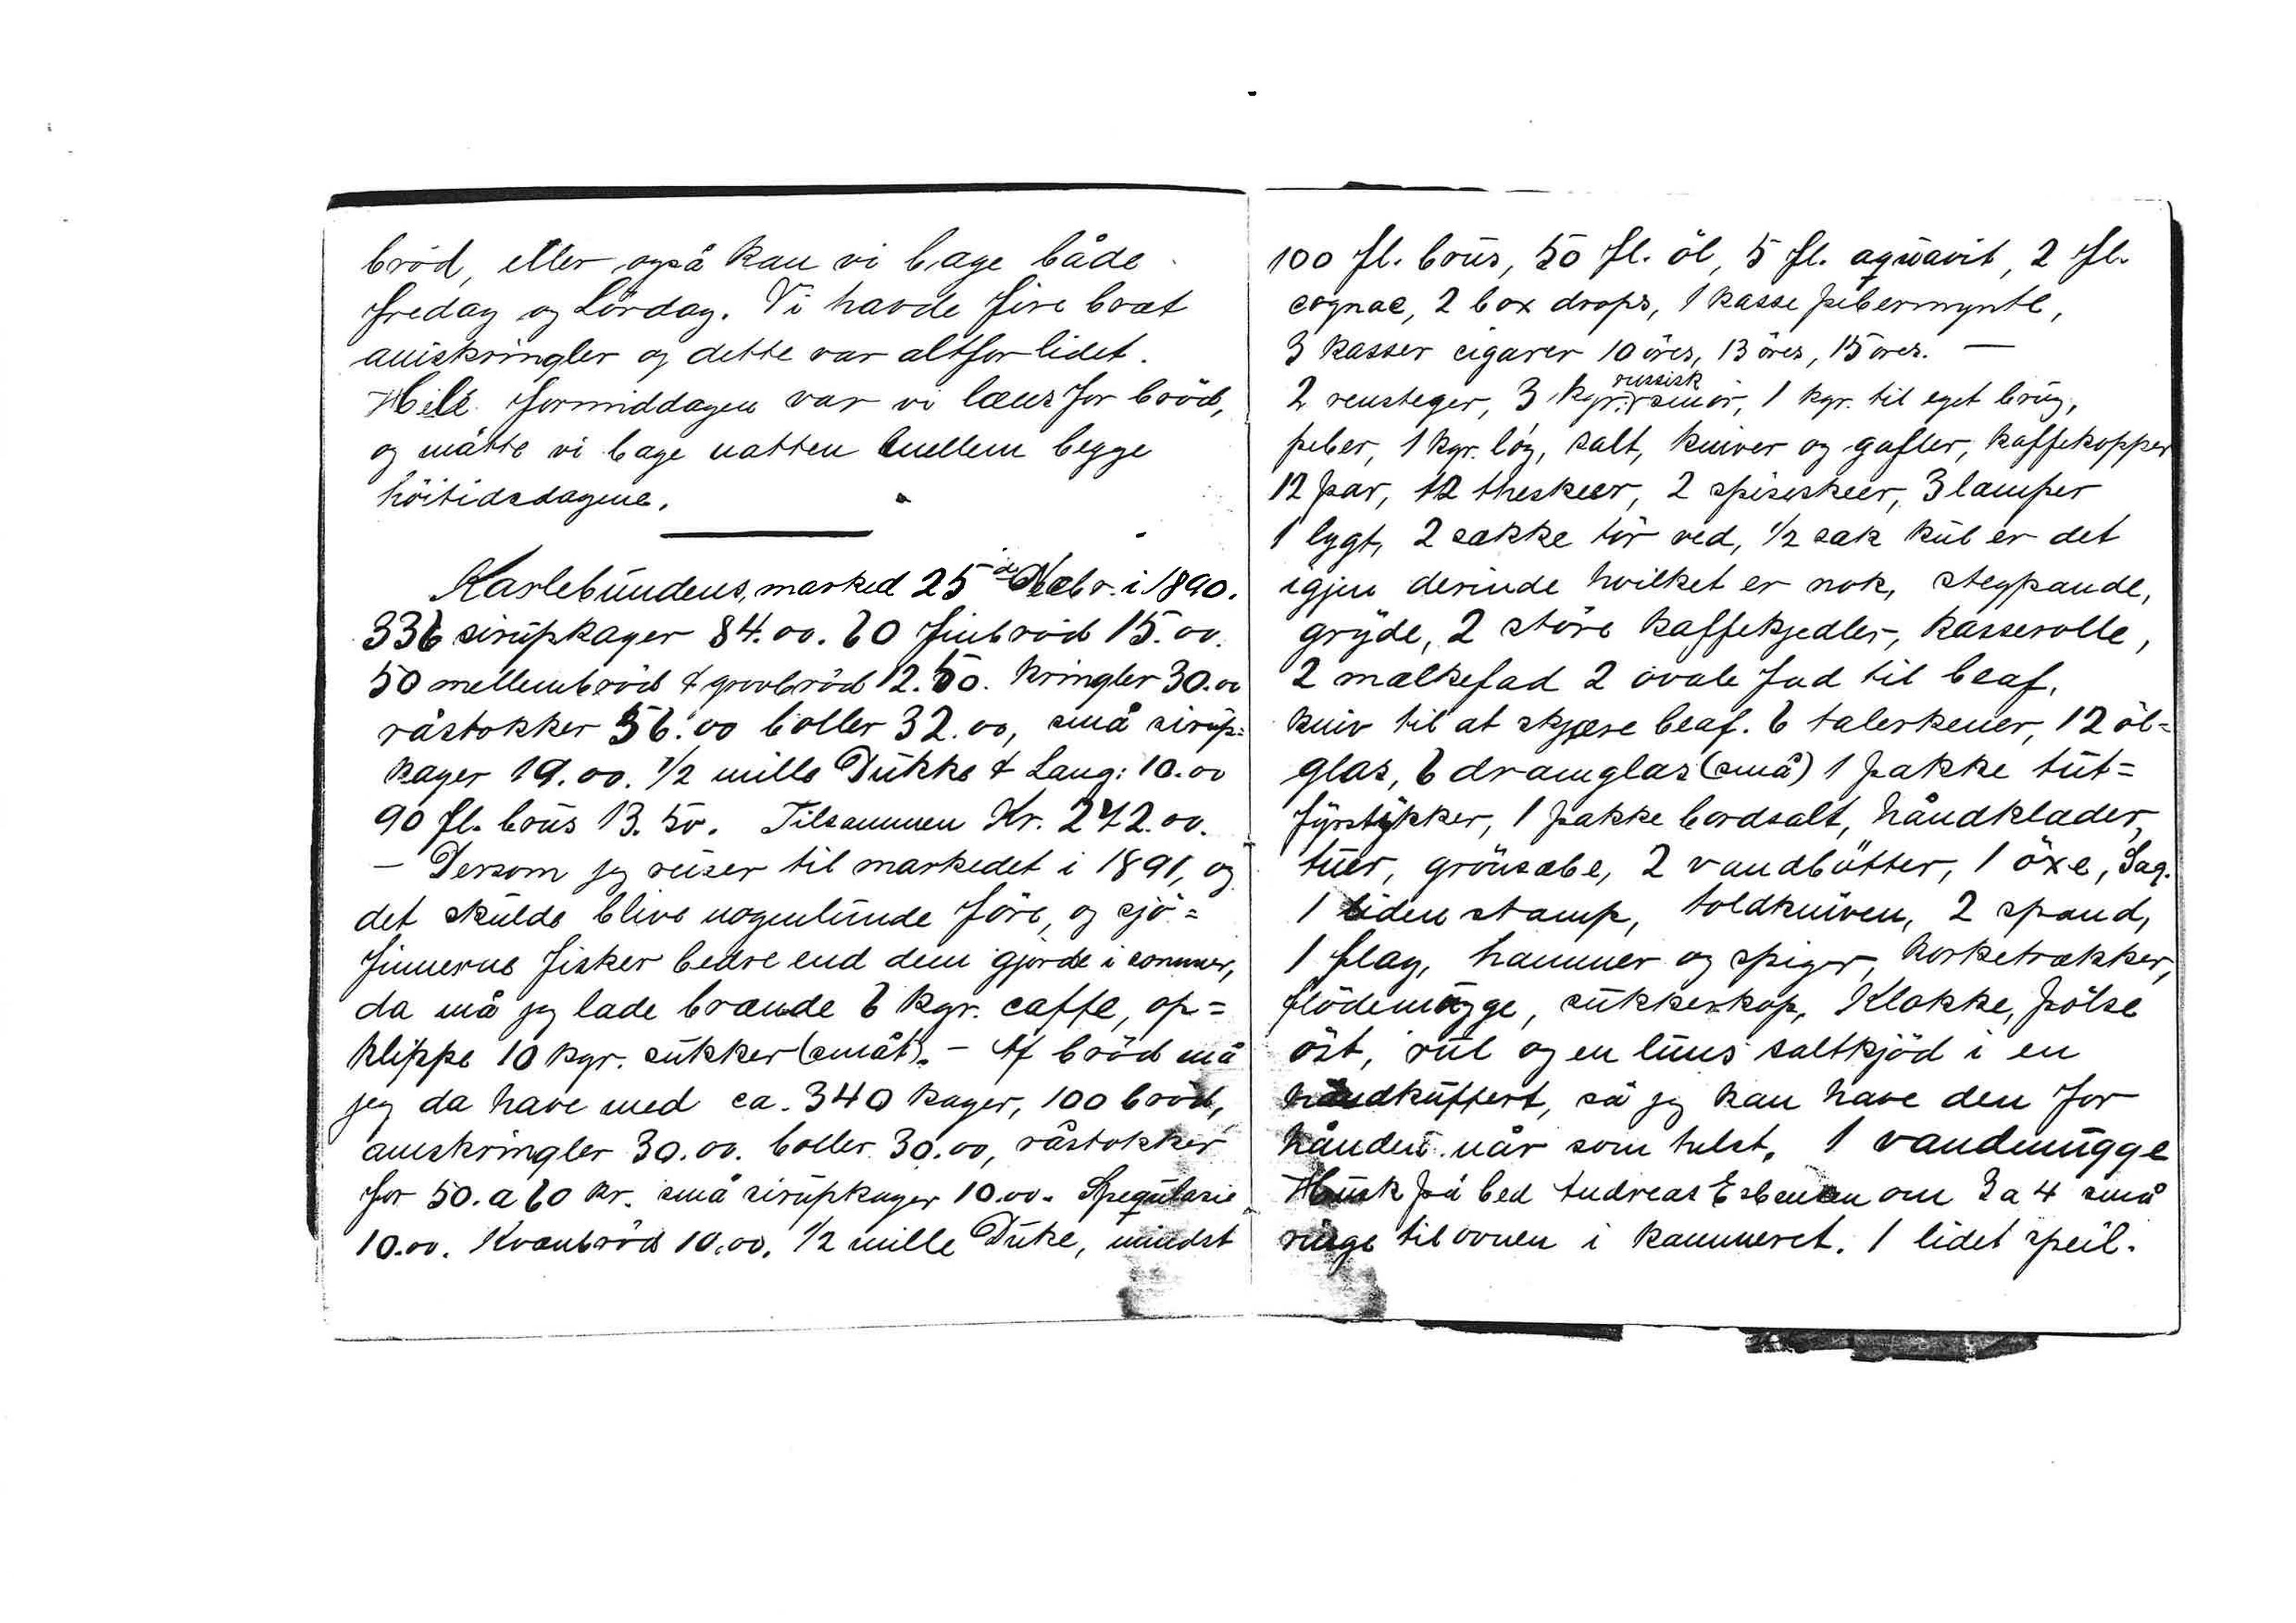 bröd, eller også kan vi bage både
fredag og Lördag. Vi havde fire bræt
aniskringler og dette var altfor lidet.
Hele formiddagen var vi læns for bröd,
og måtte vi bage natten mellem begge
höitidsdagene.
Karlebundens marked 25de Novbr. i 1890.
336 sirupkager 84.00. 60 finbröd 15.00.
50 mellembröd & grovbröd 12.50. kringler 30.00
råstokker 56.00 boller 32.00, små sirup=
kager 19.00. 1/2 mille Dukke & Lang: 10.00
90 fl. brus 13.50. Tilsammen Kr. 272.00.
– Dersom jeg reiser til markedet i 1891, og
det skulde blive nogenlunde före, og sjö=
finnerne fisker bedre end dem gjorde i sommer,
da må jeg lade brænde 6 kgr. caffe, op=
klippe 10 kgr. sukker (småt). – Af bröd må
jeg da have med ca. 340 kager, 100 bröd,
aniskringler 30.00. boller 30.00, råstokker
for 50. a 60 kr. små sirupkager 10.00. Spegulasie
10.00. Kvænbröd 10.00. 1/2 mille Duke, mindst
100 fl. brus, 50 fl. öl, 5 fl. aquavit, 2 fl.
cognac, 2 box drops, 1 kasse pebermynte,
3 kasser cigarer 10 öres, 13 öres, 15 öres. –
2 rensteger, 3 kgr. russisk smör, 1 kgr. til eget brug,
peber, 1 kgr. løg, salt, kniver og gafler, kaffekopper
12 par, 12 theskeer, 2 spiseskeer, 3 lamper
1 lygt, 2 sække tör ved, 1/2 sæk kul er det
igjen derinde hvilket er nok, stegpande,
gryde, 2 störe kaffekjedler, kasserolle,
2 mælkefad 2 ovale fad til beaf,
kniv til at skjære beaf. 6 talerkener, 12 öl=
glas, 6 dramglas (små) 1 pakke tut=
fyrstykker, 1 pakke bordsalt, håndklæder,
tuer, grönsæbe, 2 vandbötter, 1 öxe, Sag.
1 liden stamp, toldkniven, 2 spand,
1 flag, hammer og spiger, korketrækker,
flödemugge, sukkerkop, Klokke, pölse
öst, rul og en luns saltkjöd i en
håndkuffert, så jeg kan have den for
hånden når som helst, 1 vandmugge
Husk på bed Andreas Esbensen om 3 a 4 små
ringe til ovnen i kammeret. 1 lidet speil.